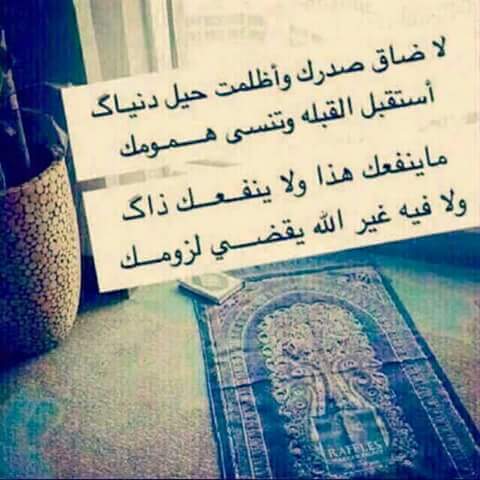 لا ضاق صدرك وأظلمت حيل دنياگ
أستقبل القبله وتنسى همومك
ماينفعك هذا ولا ينفعك ذاگ
ولا فيه غير الله يقضي لزومك
RAFFLES